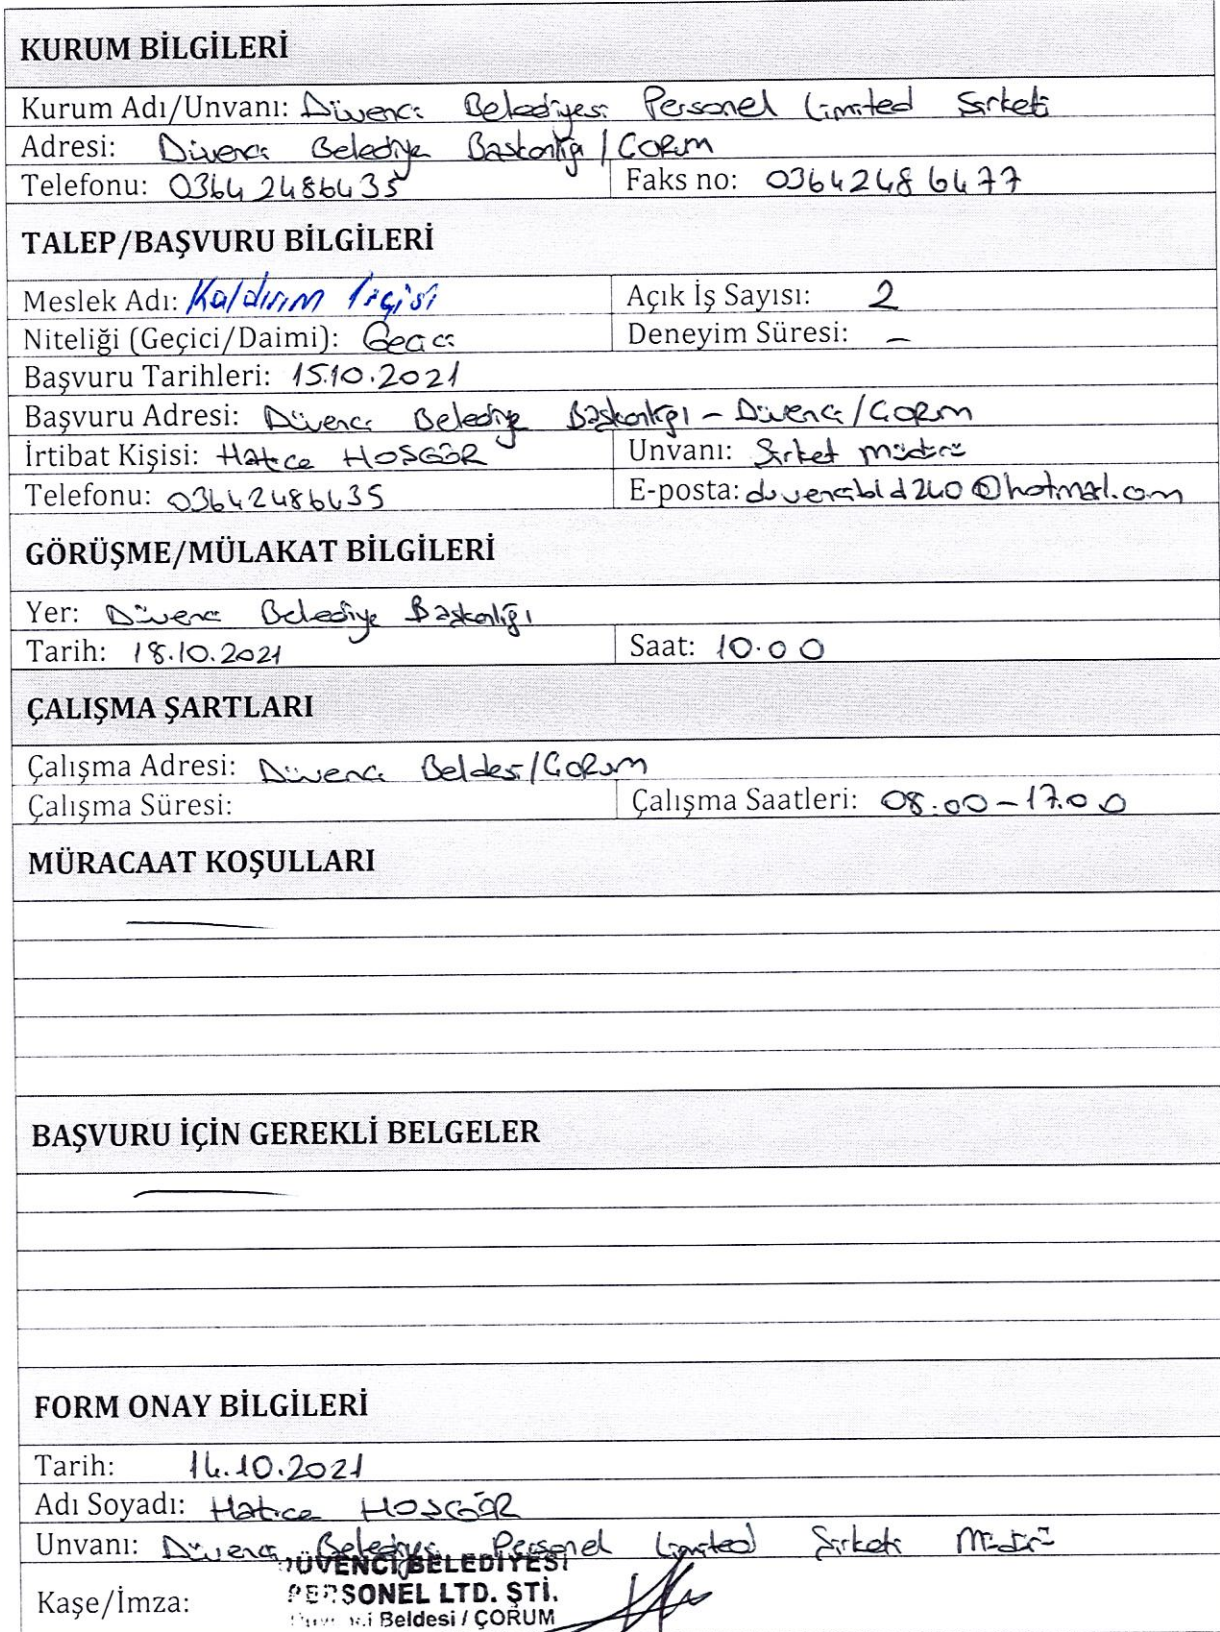 KURUM BİLGİLERİ
Kurum Adı/Unvanı: Düvenci Belediyesi Personel Limited Şirketi
Adresi: Düvenci Belediye Başkanlığı / ÇORUM
Telefonu: 0364 2486435 Faks no: 0364248 6477
TALEP/BAŞVURU BİLGİLERİ
Meslek Adı: Kaldırım İşçisi Açık İş Sayısı: 2
Niteliği (Geçici/Daimi): Geçici Deneyim Süresi: –
Başvuru Tarihleri: 15.10.2021
Başvuru Adresi: Düvenci Belediye Başkanlığı – Düvenci / ÇORUM
İrtibat Kişisi: Hatice HOŞGÖR Unvanı: Şirket müdürü
Telefonu: 03642486435 E-posta: duvencibld240@hotmail.com
GÖRÜŞME/MÜLAKAT BİLGİLERİ
Yer: Düvenci Belediye Başkanlığı
Tarih: 18.10.2021 Saat: 10.00
ÇALIŞMA ŞARTLARI
Çalışma Adresi: Düvenci Beldesi / ÇORUM
Çalışma Süresi: Çalışma Saatleri: 08.00 – 17.00
MÜRACAAT KOŞULLARI
BAŞVURU İÇİN GEREKLİ BELGELER
FORM ONAY BİLGİLERİ
Tarih: 14.10.2021
Adı Soyadı: Hatice HOŞGÖR
Unvanı: Düvenci Belediyesi Personel Limited Şirketi Müdürü
DÜVENCİ BELEDİYESİ
Kaşe/İmza: PERSONEL LTD. ŞTİ.
Düvenci Beldesi / ÇORUM